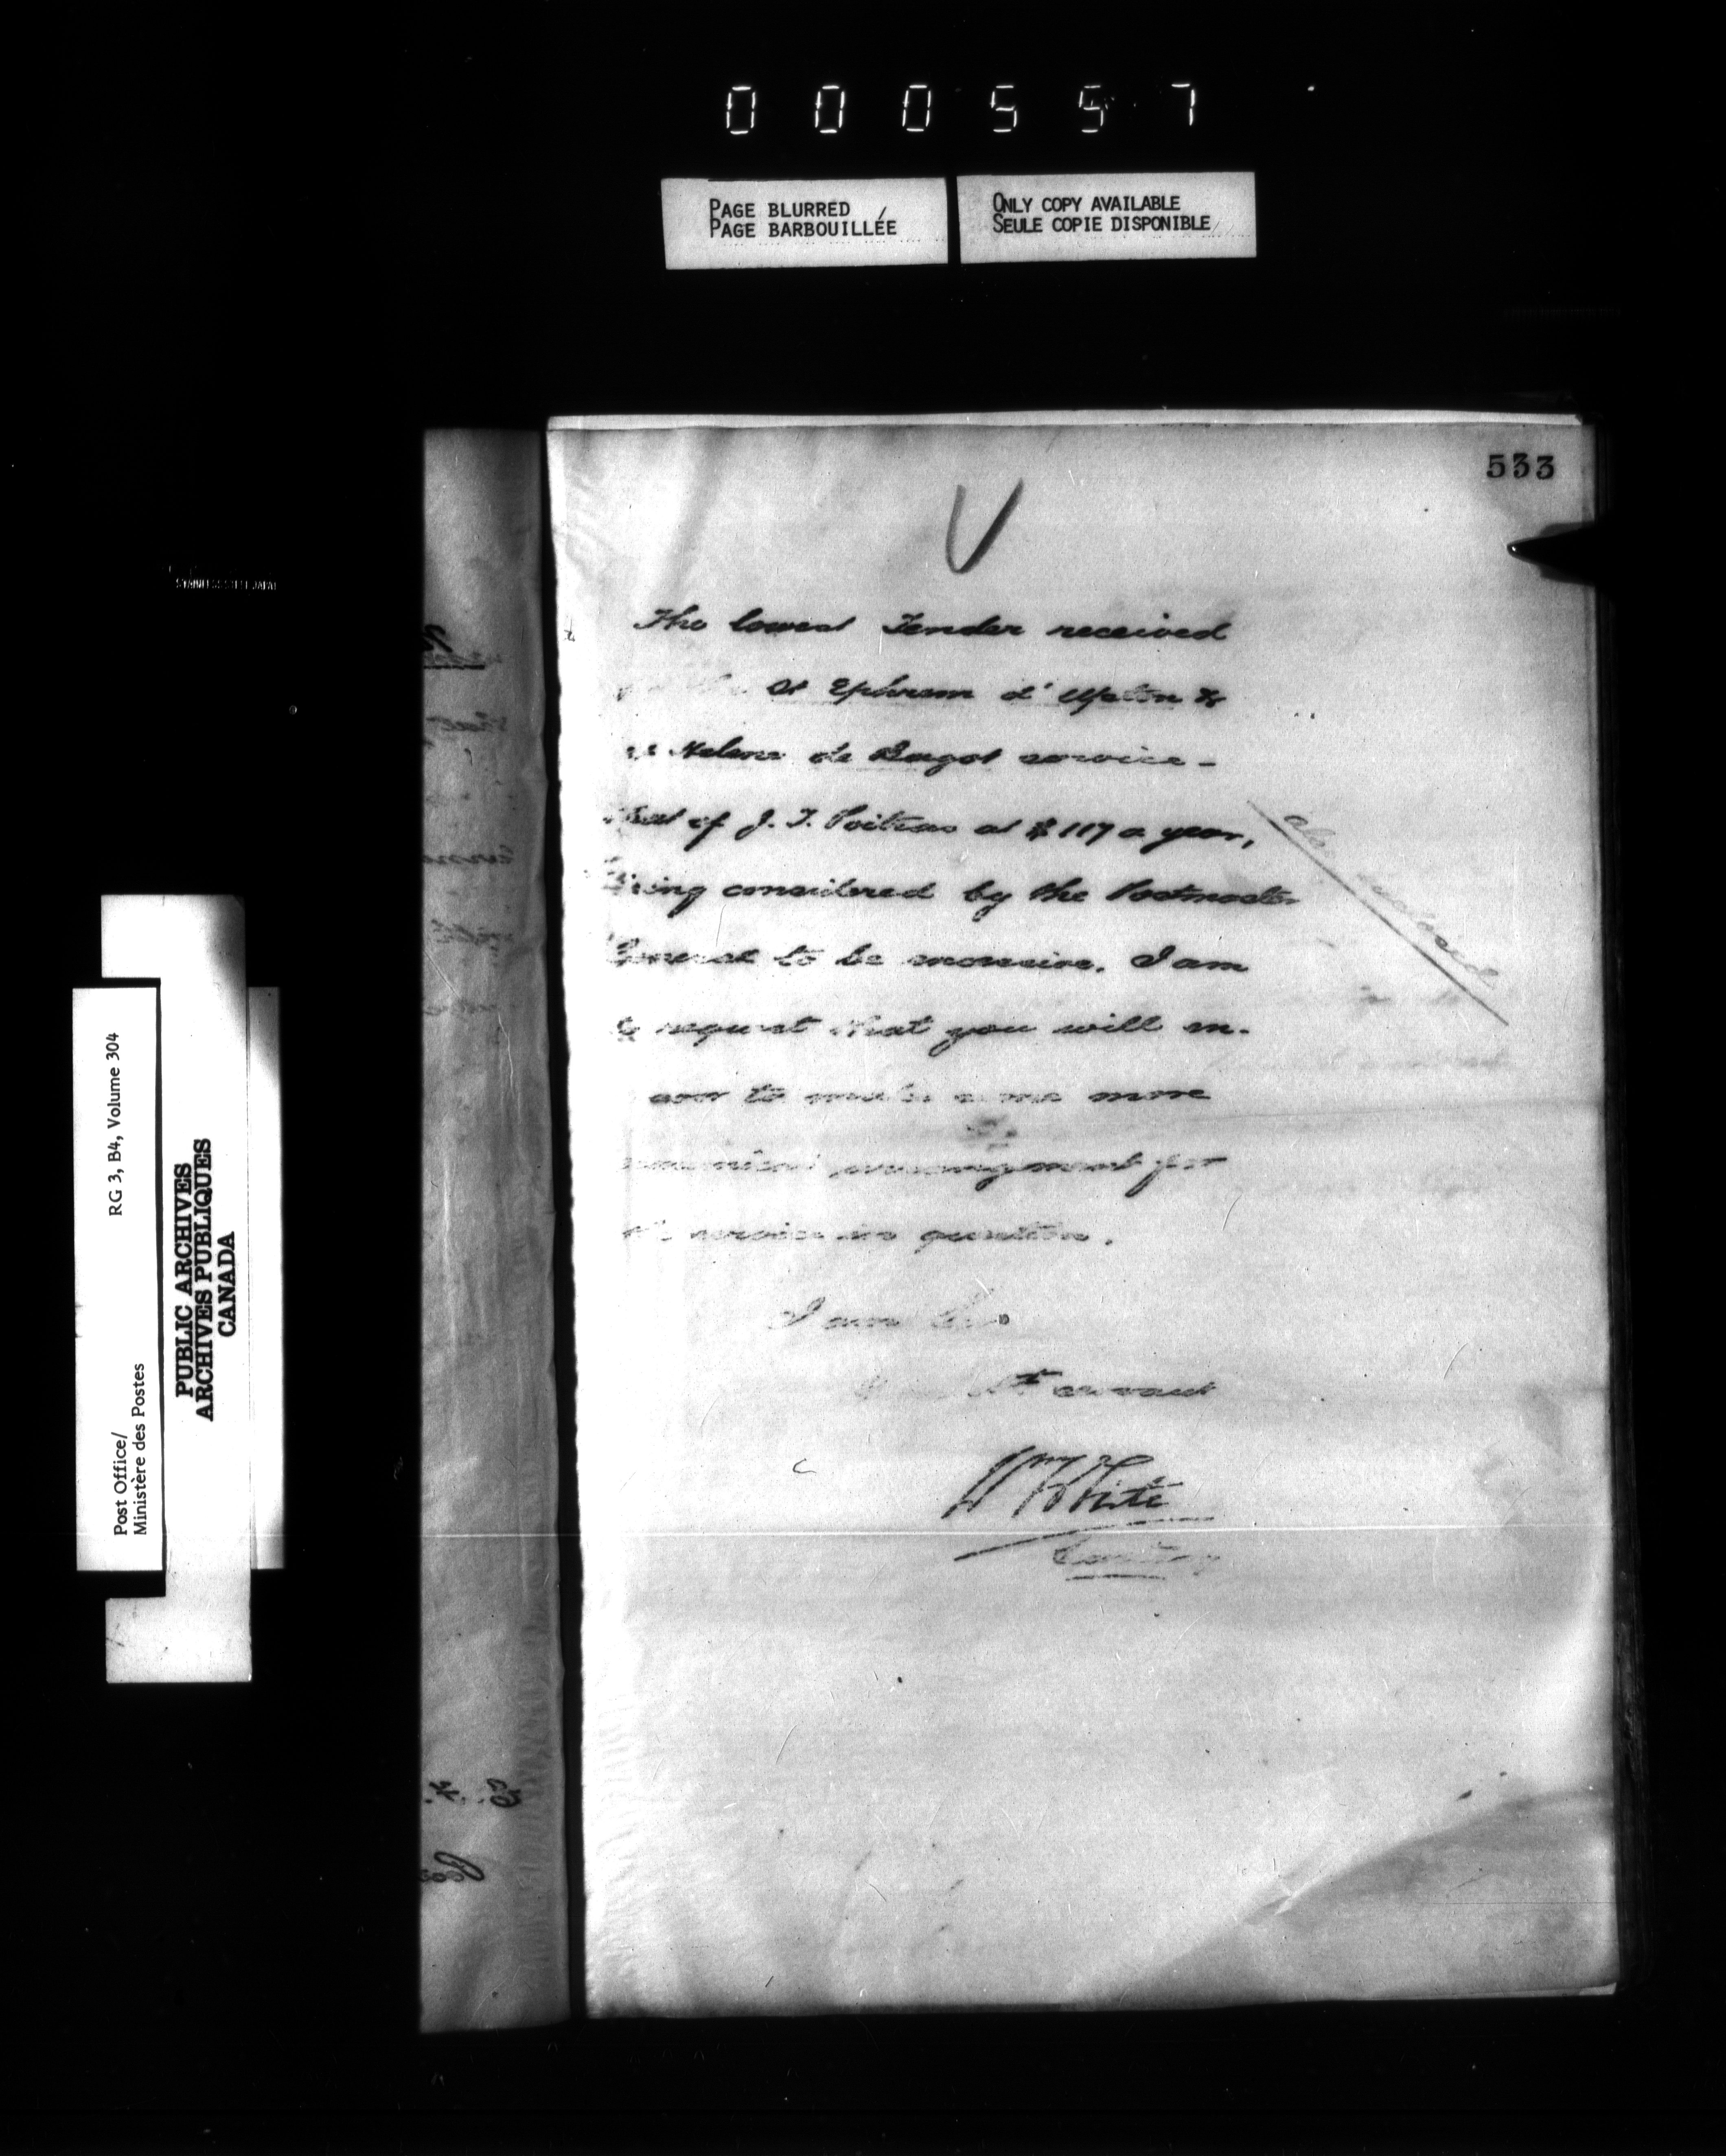 000557
PAGE BLURRED
PAGE BARBOUILLÉE
ONLY COPY AVAILABLE
SEULE COPIE DISPONIBLE
533
The lowest Tender received
St Ephrem d'Upton &
Helene de Bagot service -
that of J. T. Poitras at $117 a year,
being considered by the Postmaster
General to be excessive. I am
to request that you will en-
to make some more
arrangement for
the service in question.
I am Sir
servant
Wm White
Secretary
RG 3, B4, Volume 304
Post Office/
Ministère des Postes
PUBLIC ARCHIVES
ARCHIVES PUBLIQUES
CANADA
STAINLESS STEEL JAPAN